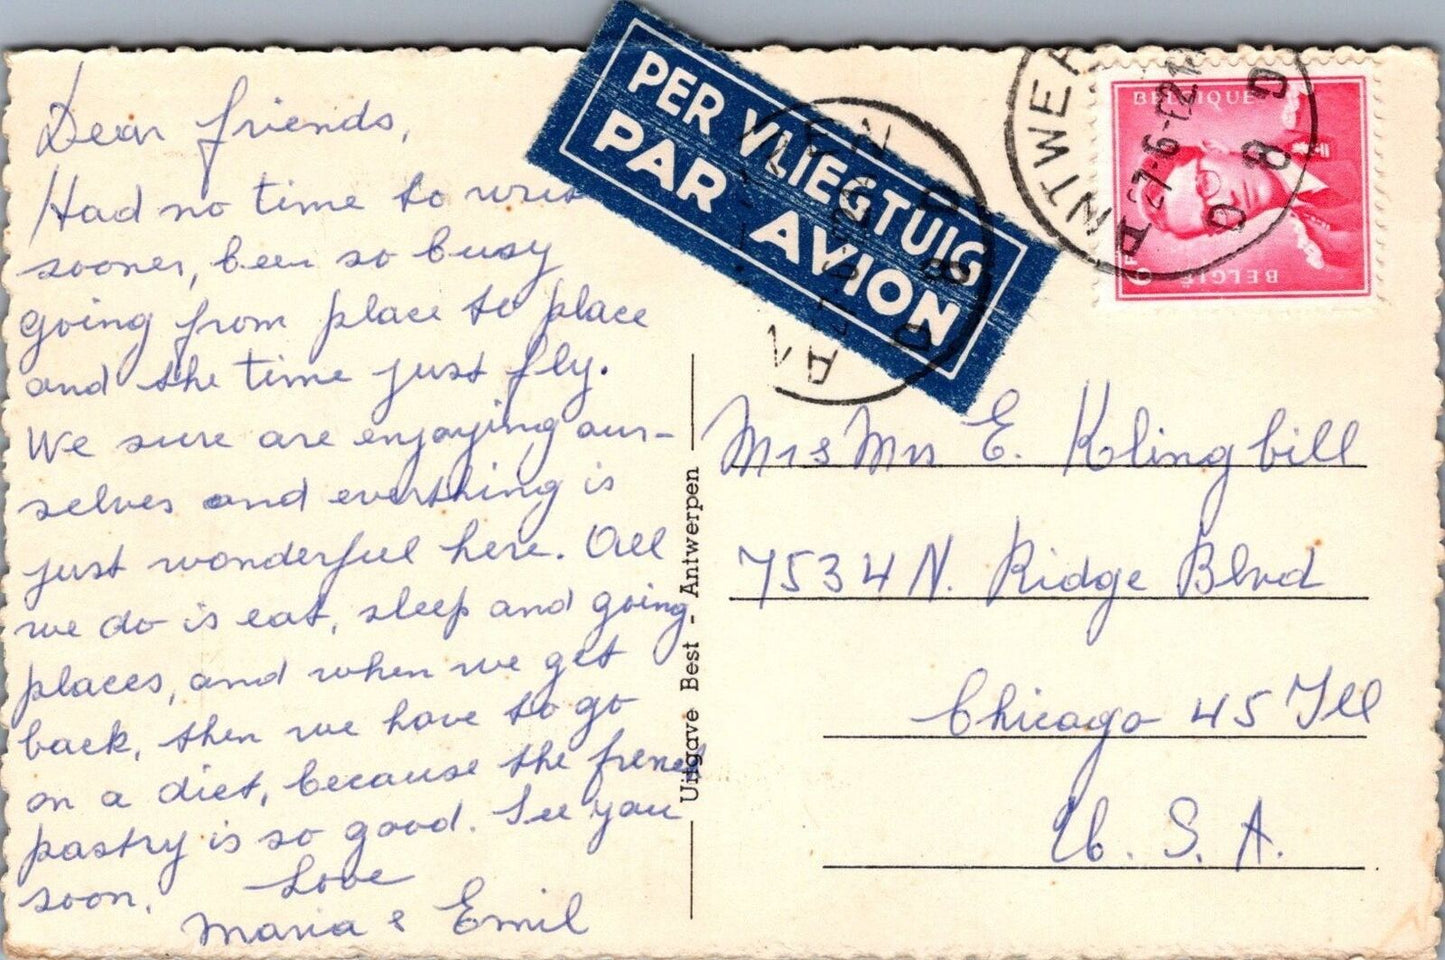 Dear friends,
Had no time to write
sooner, been so busy
going from place to place
and the time just fly.
We sure are enjoying our-
selves and everthing is
just wonderful here. All
we do is eat, sleep and going
places, and when we get
back, then we have to go
on a diet, because the french
pastry is so good. See you
soon. Love
Maria & Emil
Uitgave Best - Antwerpen
PER VLIEGTUIG
PAR AVION
ANTWER
BELGIQUE
BELGIË
Mrs Mrs E. Klingbill
7534 N. Ridge Blvd
Chicago 45 Ill
U. S. A.